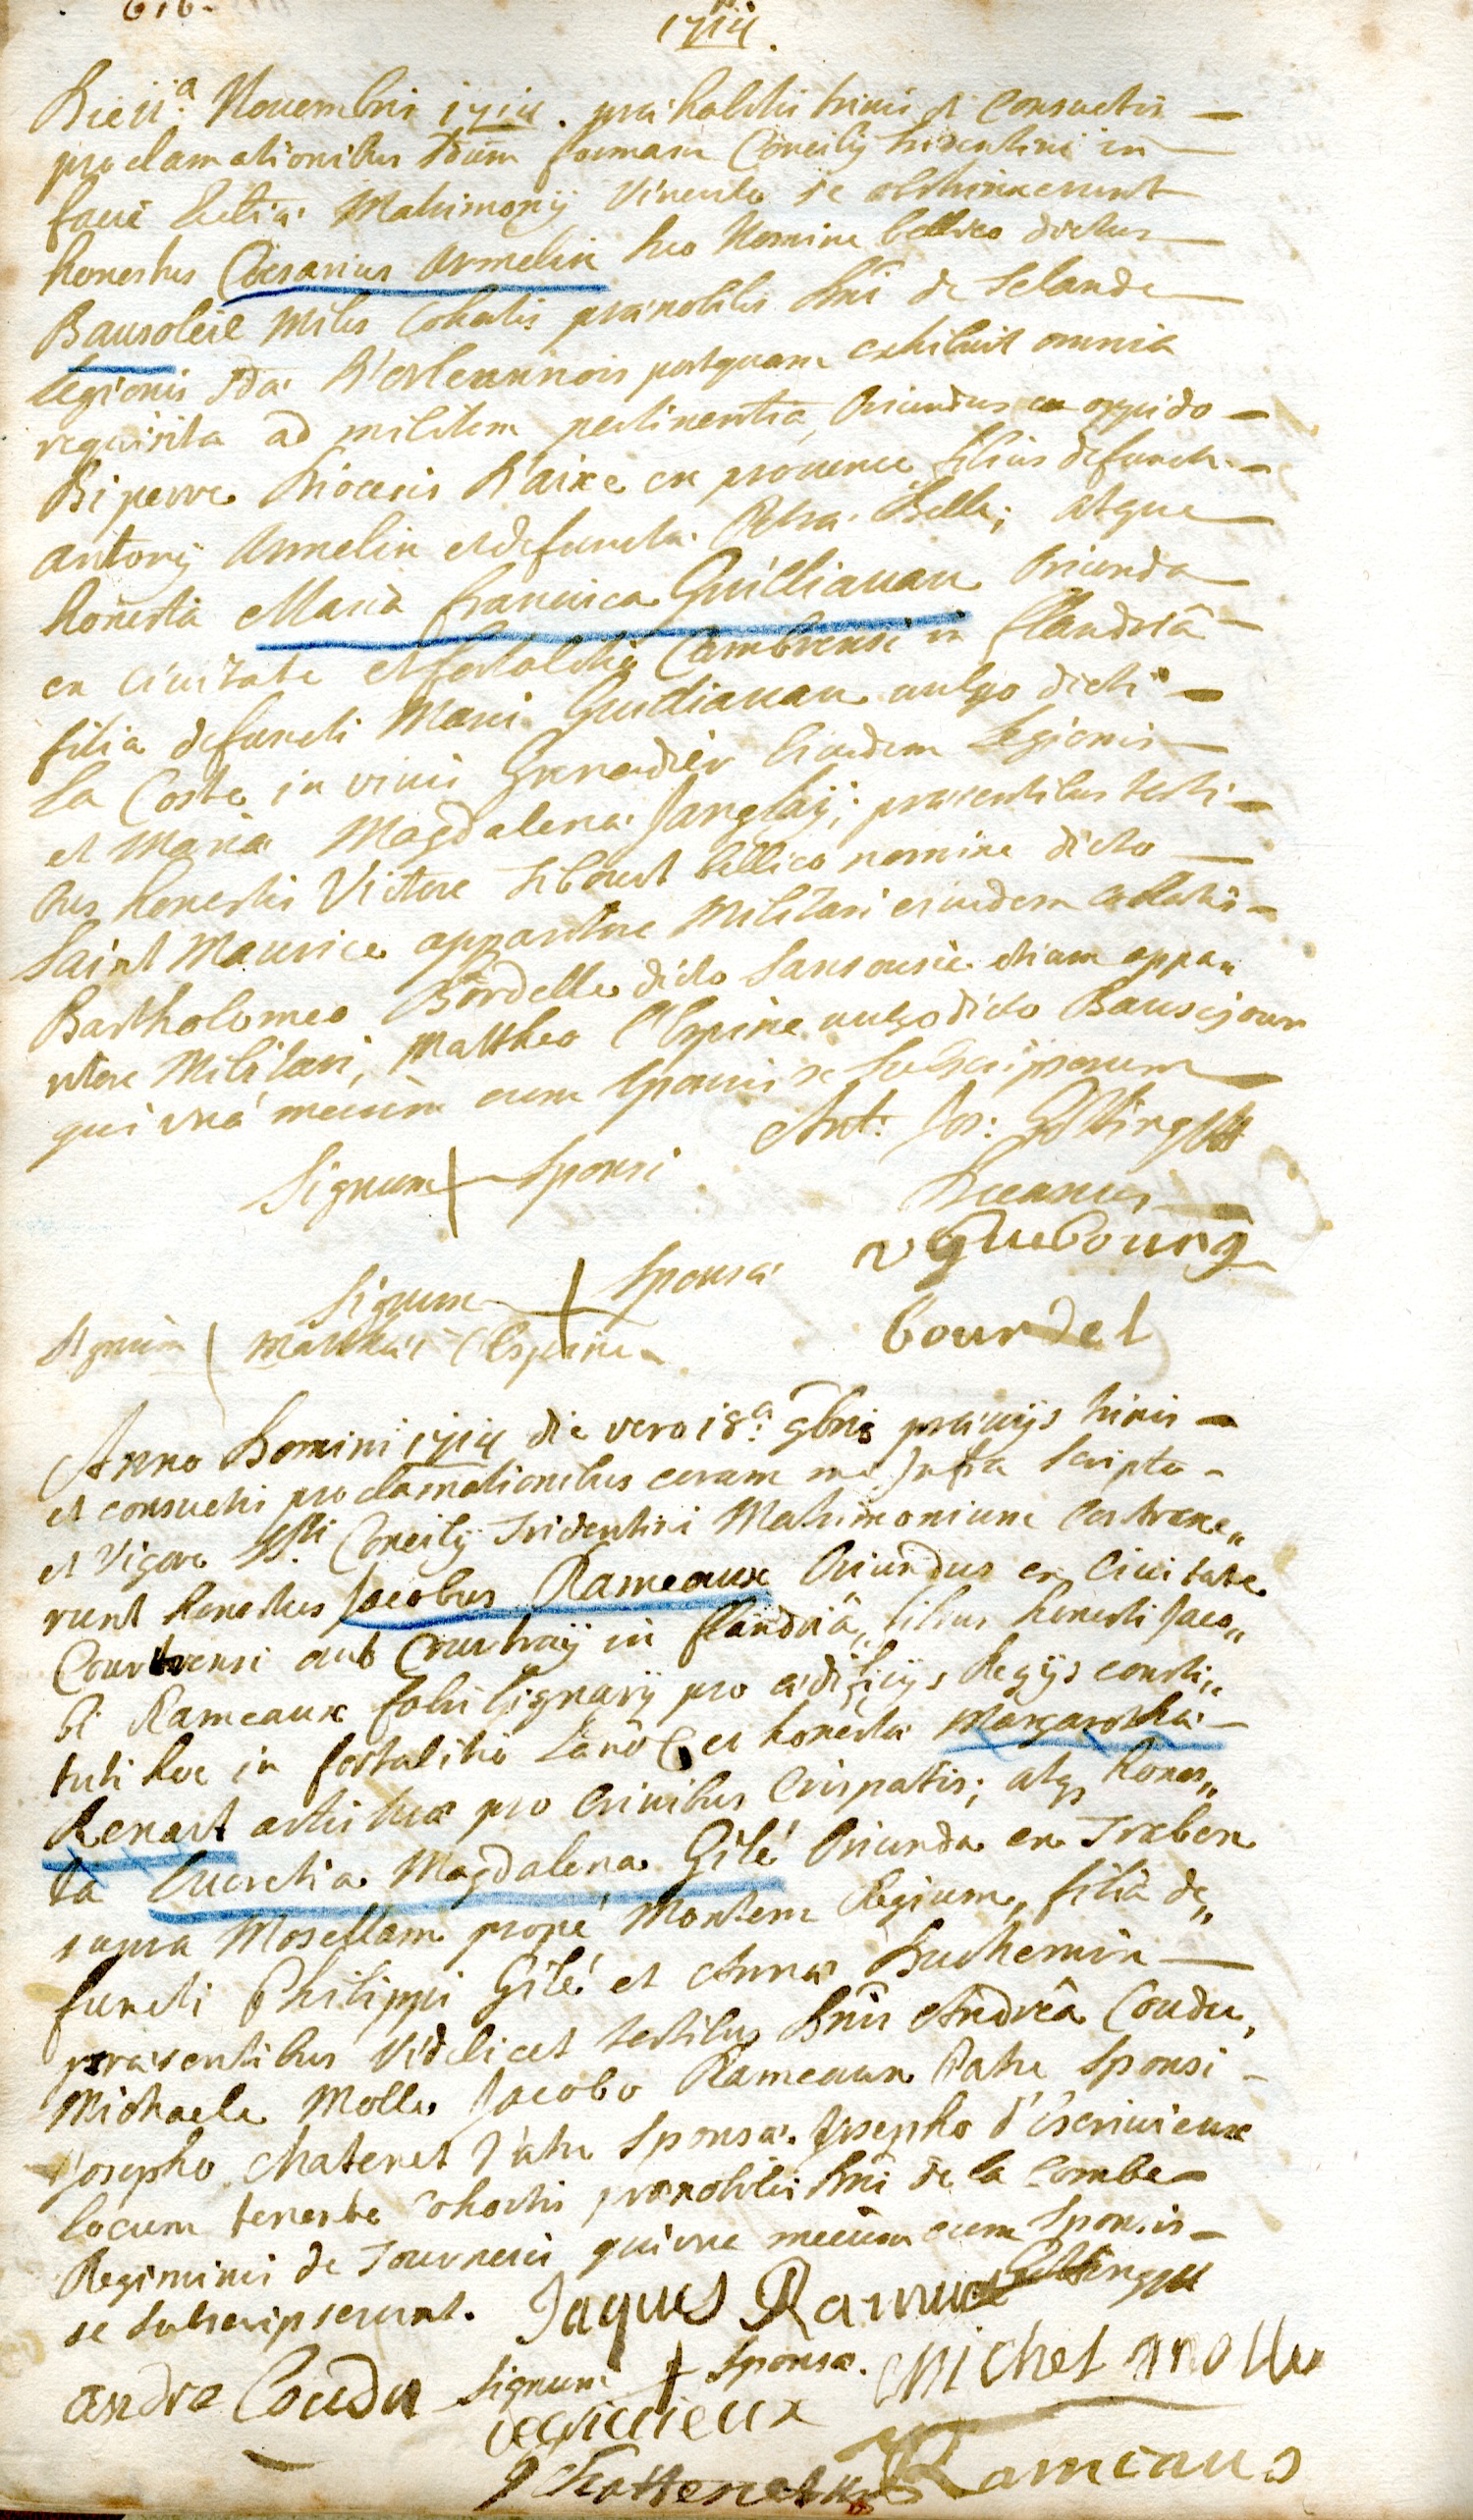 616.
1714.
Die 11.a Novembris 1714. præhabitis trinis et consuetis
proclamationibus sdum formam Concilij tridentini in
facie Ecclæ Matrimonij Vinculo se obstrinxerunt
honestus Cæsarius Armelin suo Nomine bellico dictus
Bausoleil Miles Cohortis prænobilis Dni de Selande
legionis dᵃ D'orleannois postquam exhibuit omnia
requisita ad militem pertinentia, Oriundus ex oppido
Bipevre Diocesis D'aixe en provence filius defuncti
Antonij Armelin et defunctæ Petræ Belle; atque
honesta Maria francisca Guillianau Oriunda
ex civitate et fortalitio Cambrensi in flandriâ
filia defuncti Mari Guillianau vulgo dicti
La Coste in vivis Grenadier Eiusdem Legionis
et Mariæ Magdalenæ Janglaij; præsentibus testi-
bus honestis Victore Tibourt bellico nomine dicto
Saint Maurice apparitore Militari eiusdem cohortis
Bartholomeo Bordelle dicto Sansousie etiam appa„
ritore Militari, Mattheo l'Espine vulgo dicto Bausejour
qui unâ mecum cum sponsis se subscripserunt
Signum + Sponsi
Ant: Jos: Göttingen
Decanus
Signum + Sponsæ
Signum Matthæi l'Espine
bourdel
Anno Domini 1714 die vero 18.a 9bris præviis trinis
et consuetis proclamationibus coram me Infra Scripto
et Vigore SSti Concilij Tridentini Matrimonium Contraxe„
runt honestus Jacobus Rameaux Oriundus ex Civitate
Courtrensi aut Courtraij in flandriâ, filius honesti Jaco„
bi Rameaux fabri lignarij pro ædificijs Regijs consti„
tuti hoc in fortalitio Landoe et honestæ Margarethæ
Renart artistæ pro Crinibus Crispatis; atqe hones„
ta Lucretia Magdalena Gilé Oriunda ex Traben
supra Mosellam propé Montem Regium, filia de„
functi Philippi Gilé et Annæ Duchemin
præsentibus Videlicet testibus Dnis Andreâ Coudu,
Michaele Molle, Jacobo Rameaux Patre Sponsi
Josepho Chatenet Patre Sponsæ. Josepho d'Escrivieux
locum tenente Cohortis prænobilis Dni de la Combe
Regiminis de Tournesis qui una mecum cum Sponsis
se subscripserunt. Jaques Rameaux Göttingen
andre Coudu Signum + Sponsæ. Michel molle
descrivieux
Rameaus